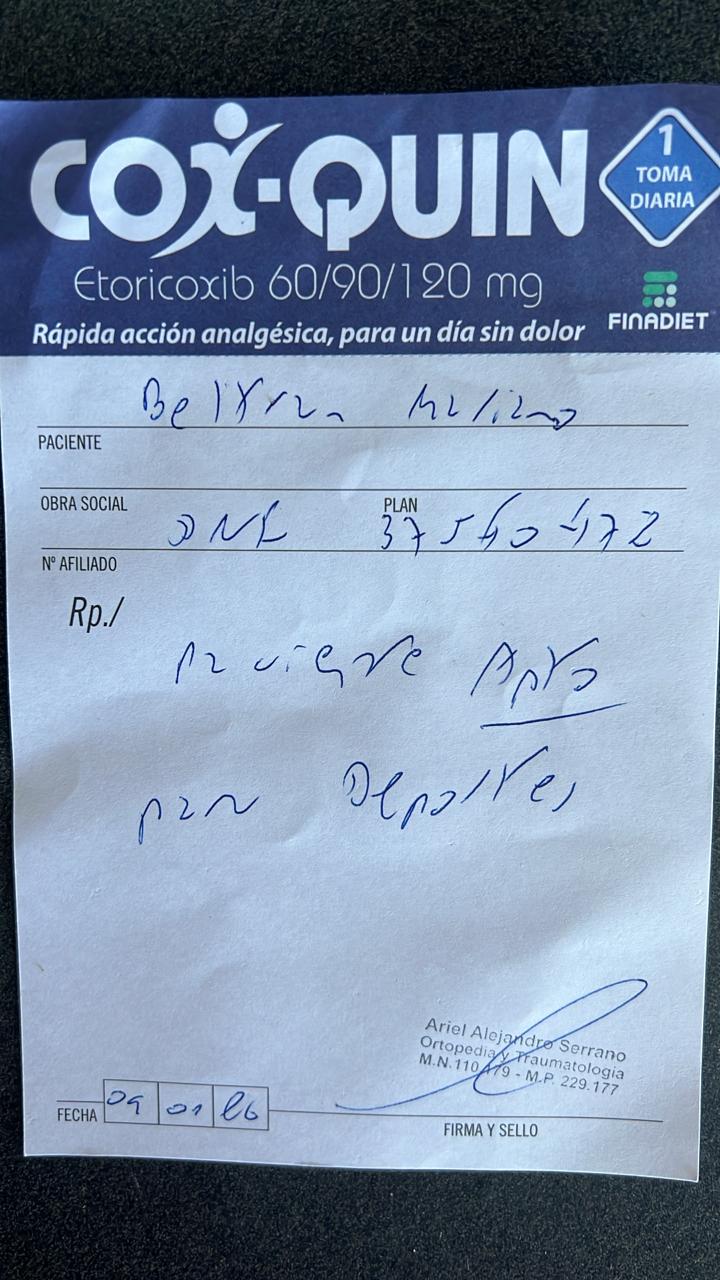 COX-QUIN
1
TOMA
DIARIA
Etoricoxib 60/90/120 mg
FINADIET
Rápida acción analgésica, para un día sin dolor
Beltran
PACIENTE
OBRA SOCIAL
PLAN
DNI 37540472
Nº AFILIADO
Rp./
Paciente Apto
para Deportes
Ariel Alejandro Serrano
Ortopedia y Traumatología
M.N.110 - M.P. 229.177
FECHA 09 01 26
FIRMA Y SELLO